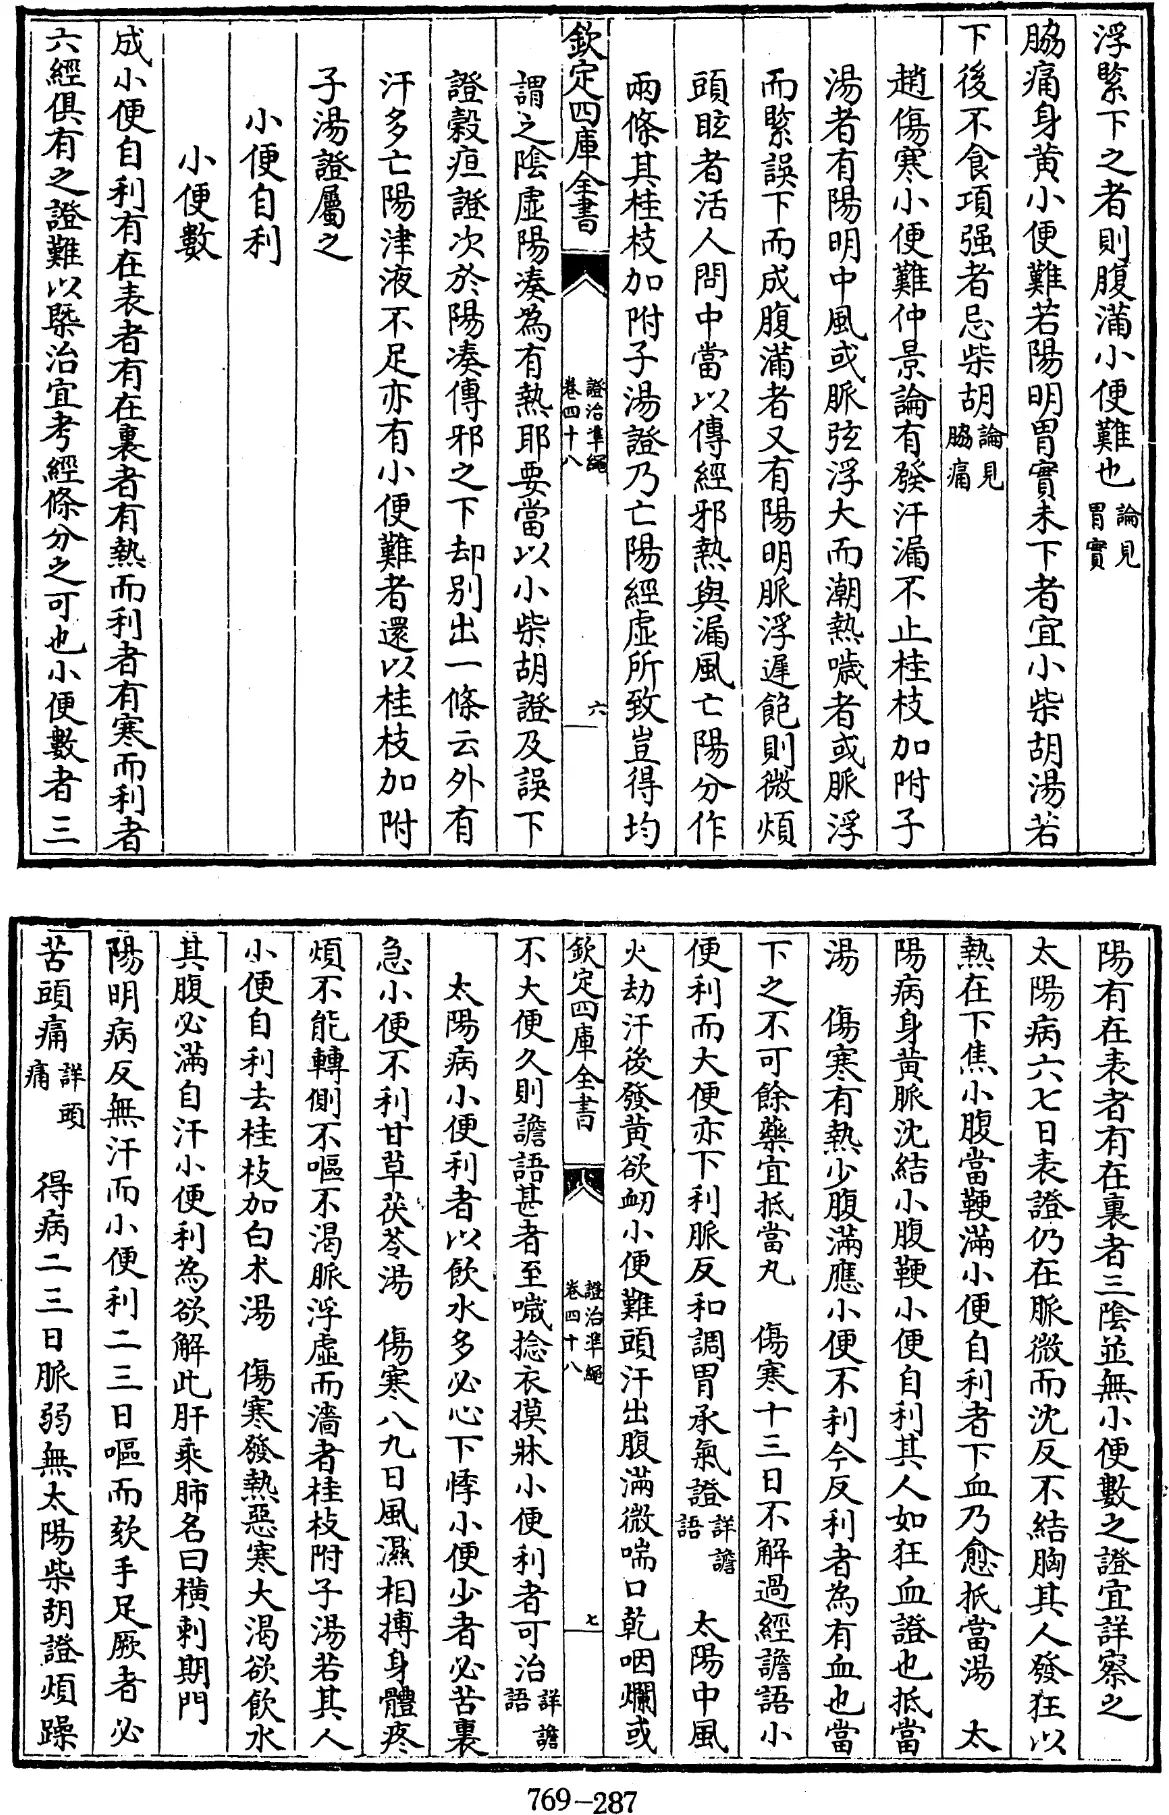 浮緊下之者則腹滿小便難也論見胃實
脇痛身黄小便難若陽明胃實未下者宜小柴胡湯若
下後不食項强者忌柴胡論見脇痛
趙傷寒小便難仲景論有發汗漏不止桂枝加附子
湯者有陽明中風或脈弦浮大而潮熱噦者或脈浮
而緊誤下而成腹滿者又有陽明脈浮遲飽則微煩
頭眩者活人問中當以傳經邪熱與漏風亡陽分作
兩條其桂枝加附子湯證乃亡陽經虛所致豈得均
欽定四庫全書
證治準繩
卷四十八
六
謂之陰虛陽湊為有熱耶要當以小柴胡證及誤下
證穀疸證次於陽湊傳邪之下却别出一條云外有
汗多亡陽津液不足亦有小便難者還以桂枝加附
子湯證屬之
小便自利
小便數
成小便自利有在表者有在裏者有熱而利者有寒而利者
六經俱有之證難以槩治宜考經條分之可也小便數者三
陽有在表者有在裏者三陰並無小便數之證宜詳察之
太陽病六七日表證仍在脈微而沈反不結胸其人發狂以
熱在下焦小腹當鞕滿小便自利者下血乃愈抵當湯 太
陽病身黄脈沈結小腹鞕小便自利其人如狂血證也抵當
湯 傷寒有熱少腹滿應小便不利今反利者為有血也當
下之不可餘藥宜抵當丸 傷寒十三日不解過經譫語小
便利而大便亦下利脈反和調胃承氣證詳譫語 太陽中風
火劫汗後發黄欲衄小便難頭汗出腹滿微喘口乾咽爛或
欽定四庫全書
證治準繩
卷四十八
七
不大便久則譫語甚者至噦捻衣摸牀小便利者可治詳譫語
太陽病小便利者以飲水多必心下悸小便少者必苦裏
急小便不利甘草茯苓湯 傷寒八九日風濕相搏身體疼
煩不能轉側不嘔不渴脈浮虛而濇者桂枝附子湯若其人
小便自利去桂枝加白术湯 傷寒發熱惡寒大渴欲飲水
其腹必滿自汗小便利為欲解此肝乘肺名曰横刺期門
陽明病反無汗而小便利二三日嘔而欬手足厥者必
苦頭痛詳頭痛 得病二三日脈弱無太陽柴胡證煩躁
769-287